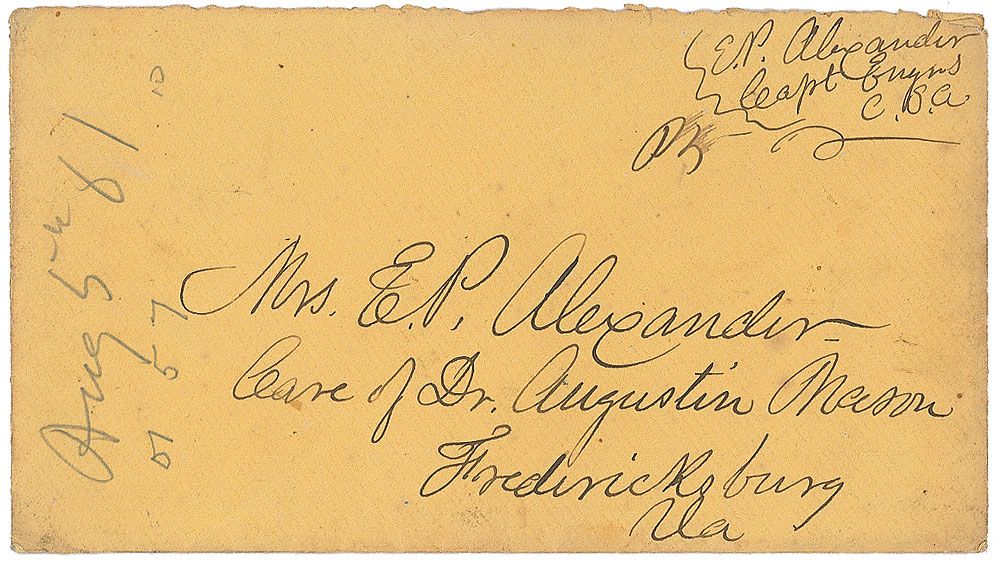 E.P. Alexander
Capt Engrs
C.S.A.
Mrs. E.P. Alexander
Care of Dr. Augustin Mason
Fredericksburg
Va
Aug 5th 61